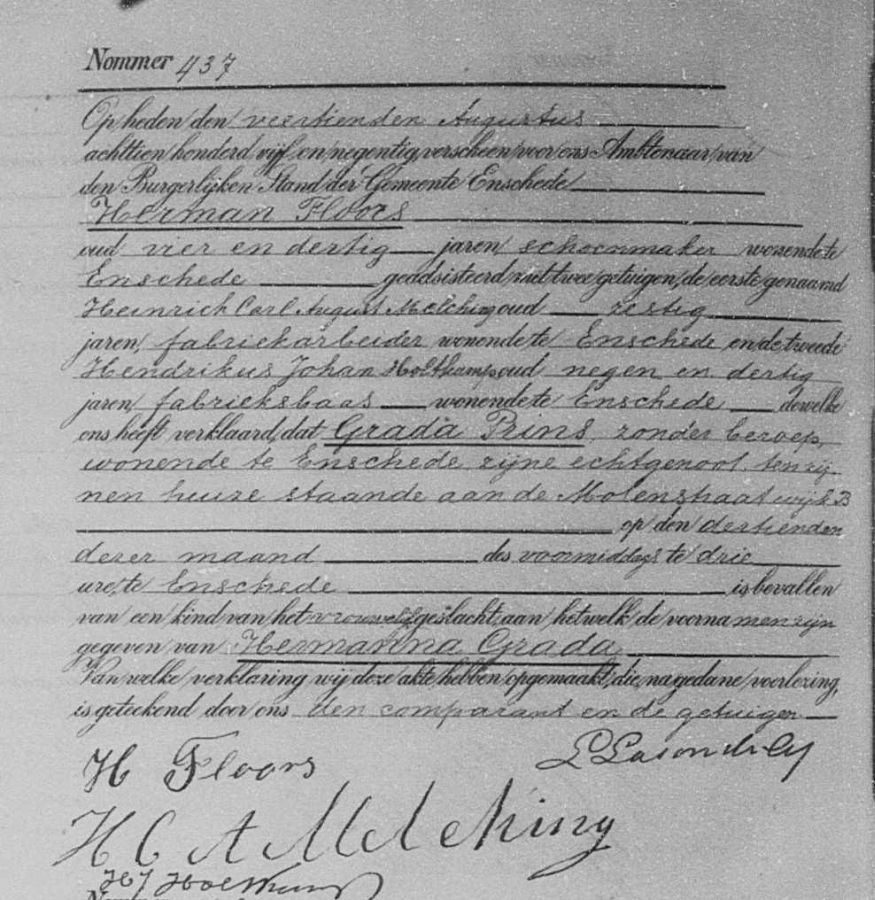 Nommer 437
Op heden den veertienden Augustus
achttien honderd vijf en negentig, verscheen voor ons Ambtenaar van
den Burgerlijken Stand der Gemeente Enschede
Herman Floors
oud vier en dertig jaren, schoenmaker wonende te
Enschede geadsisteerd met twee getuigen, de eerste genaamd
Heinrich Carl August Melching oud zestig
jaren, fabriekarbeider wonende te Enschede en de tweede
Hendrikus Johan Holtkamp oud negen en dertig
jaren, fabrieksbaas wonende te Enschede dewelke
ons heeft verklaard, dat Grada Prins, zonder beroep,
wonende te Enschede, zijne echtgenoot, ten zij-
nen huize staande aan de Molenstraat wijk B
op den dertienden
dezer maand des voormiddags te drie
ure, te Enschede is bevallen
van een kind van het vrouwelijk geslacht, aan hetwelk de voornamen zijn
gegeven van Hermanna Grada
Van welke verklaring wij deze akte hebben opgemaakt, die, na gedane voorlezing,
is geteekend door ons den comparant en de getuigen
H Floors
H C A Melching
HJ Holtkamp